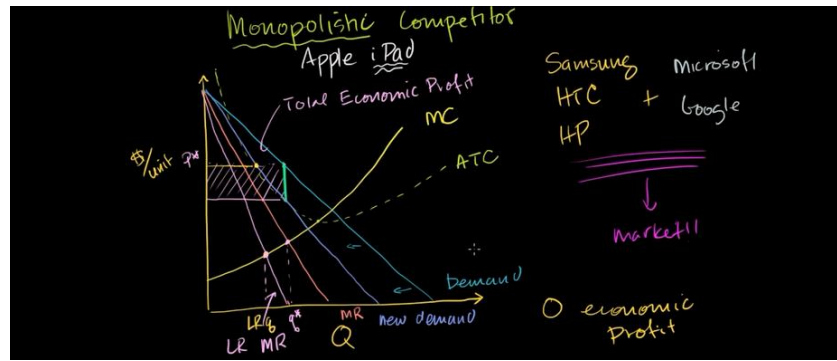 Monopolistic Competitor
Apple iPad
Total Economic Profit
MC
ATC
$/unit
P*
Demand
new demand
MR
LR q
q*
LR MR
Q
Samsung
HTC
HP
+
Microsoft
Google
market11
0 economic
Profit